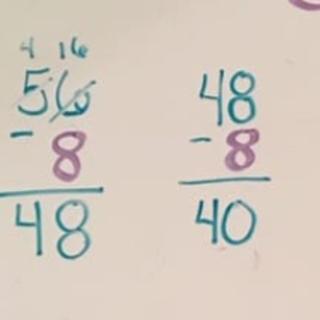 4 16
56
- 8
48
48
- 8
40